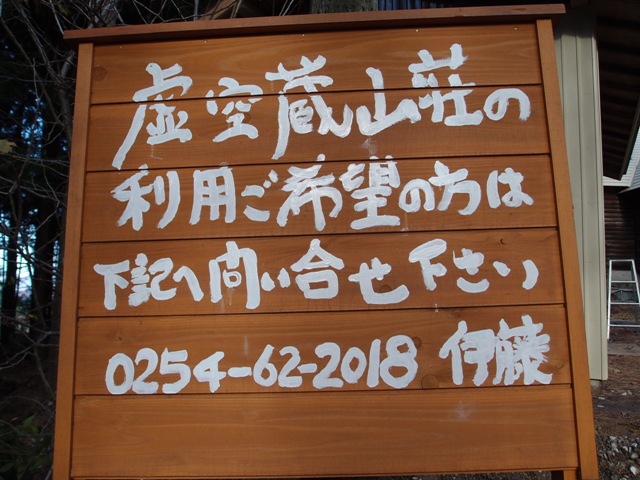 虚空蔵山荘の
利用ご希望の方は
下記へ問い合せ下さい
0254-62-2018 伊藤